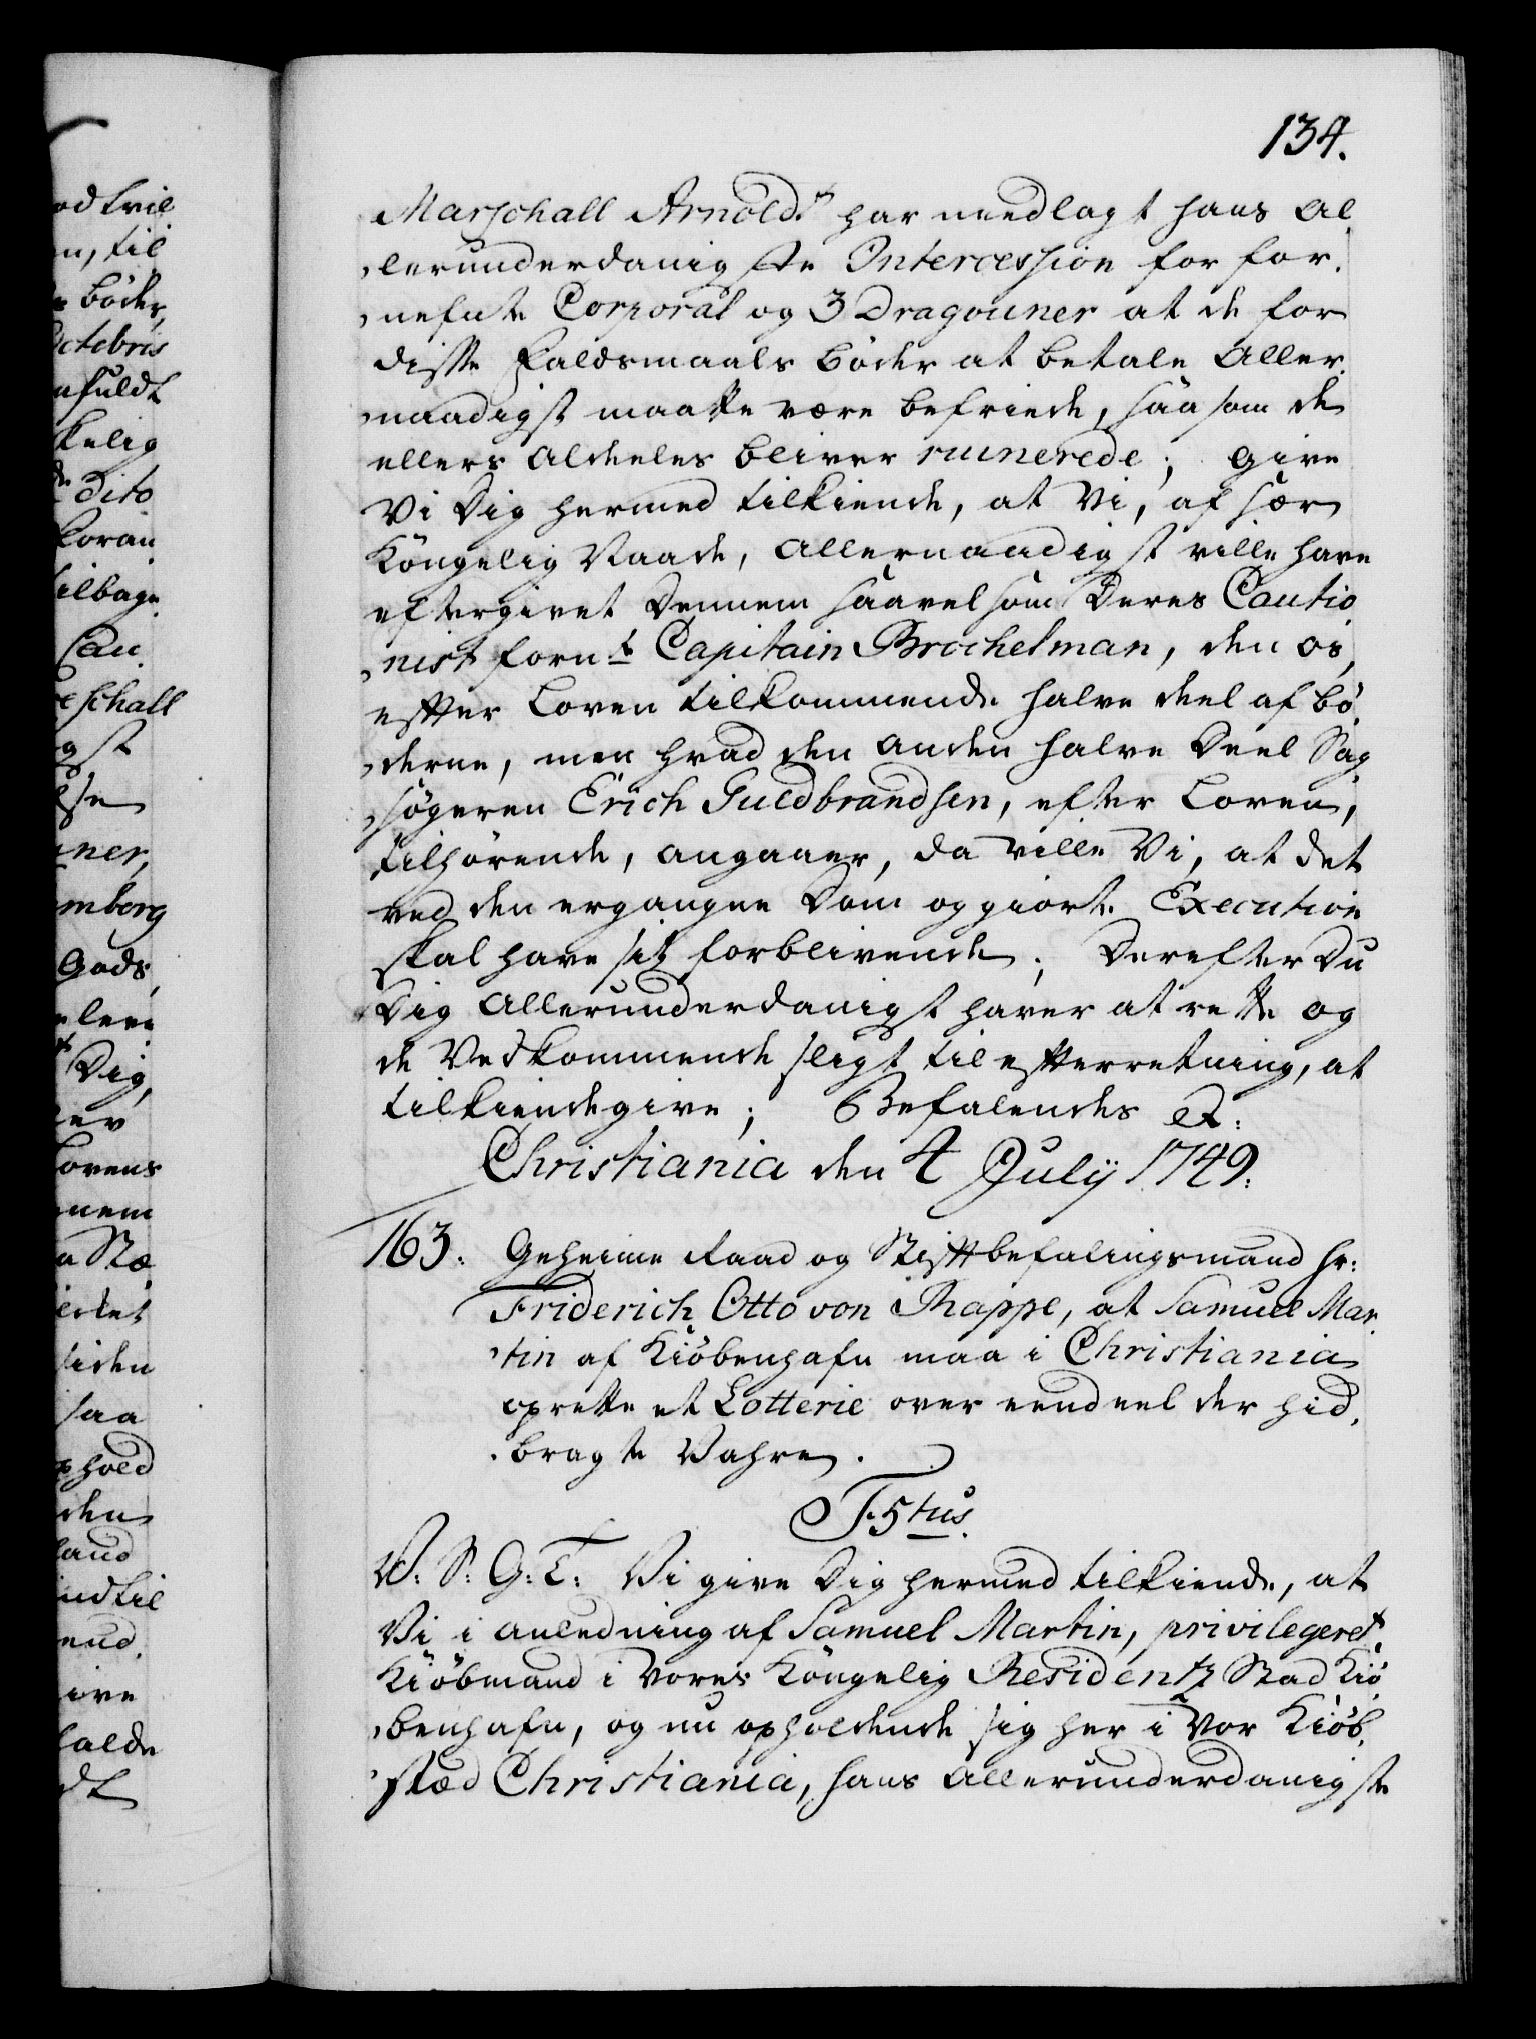 134.
Marschall Arnoldt har nedlagt hans al
lerunderdanigste Intercession for for,
nefnte Corporal og 3 Dragouner at de for
disse Faldsmaals bøder at betale Aller,
naadigst maatte være befriede, saasom de
ellers aldeles bliver ruinerede; give
Vi Dig hermed tilkiende, at Vi, af sær
Kongelig Naade, allernaadigst ville have
eftergivet dennem saavelsom deres Cautio
nist fornt Capitain Brochelman, den os,
efter Loven tilkommende halve deel af bø,
derne, men hvad den anden halve Deel Sag
søgeren Erich Guldbrandsen, efter Loven,
tilhørende, angaaer, da ville Vi, at det
ved den ergangne Dom og giorte Execution
skal have sit forblivende; Derefter Du
Dig allerunderdanigst haver at rette og
de Vedkommende sligt til efterretning, at
tilkiendegive; Befalendes etc:
Christiania den 4 Julij 1749.
163. Geheime Raad og Stiftbefalingsmand Hr:
Friderich Otto von Rappe, at Samuel Mar,
tin af Kiøbenhafn maa i Christiania
oprette et Lotterie over eendeel der hid,
bragte Vahre.
F. 5tus.
W: S: G: T: Vi give Dig hermed tilkiende, at
Vi i anledning af Samuel Martin, privilegeret
Kiøbmand i Vores Kongelig Residentz Stad Kiø
benhafn, og nu opholdende sig her i Vor Kiøb,
stæd Christiania, hans allerunderdanigste